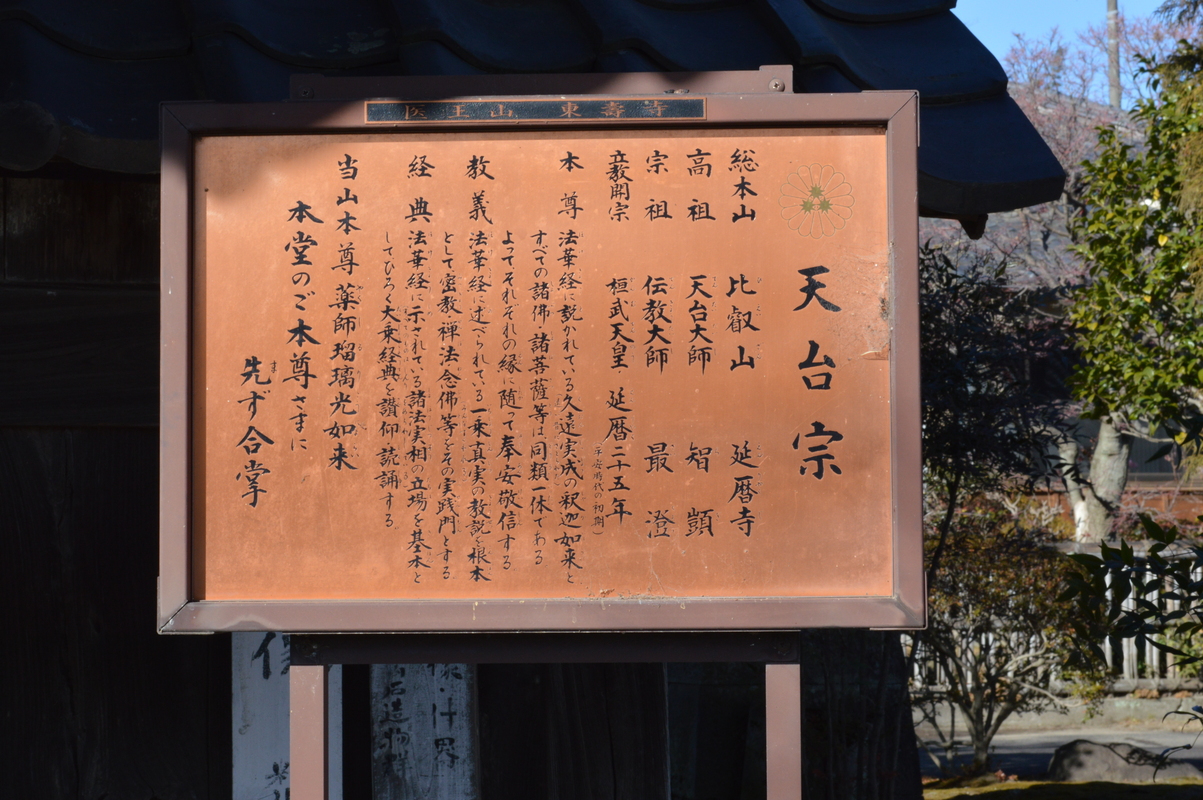 医王山 東壽寺
天台宗
総本山 比叡山 延暦寺
高祖 天台大師 智顗
宗祖 伝教大師 最澄
立教開宗 桓武天皇 延暦二十五年
(平安時代の初期)
本尊 法華経に説かれている久遠実成の釈迦如来と
すべての諸佛・諸菩薩等は同類一体である
よってそれぞれの縁に随って奉安敬信する
教義 法華経に述べられている一乗真実の教説を根本
として密教・禅法・念佛等をその実践門とする
経典 法華経に示されている諸法実相の立場を基本と
してひろく大乗経典を讃仰読誦する
当山本尊 薬師瑠璃光如来
本堂のご本尊さまに
先ず合掌
石造物群
像・什器